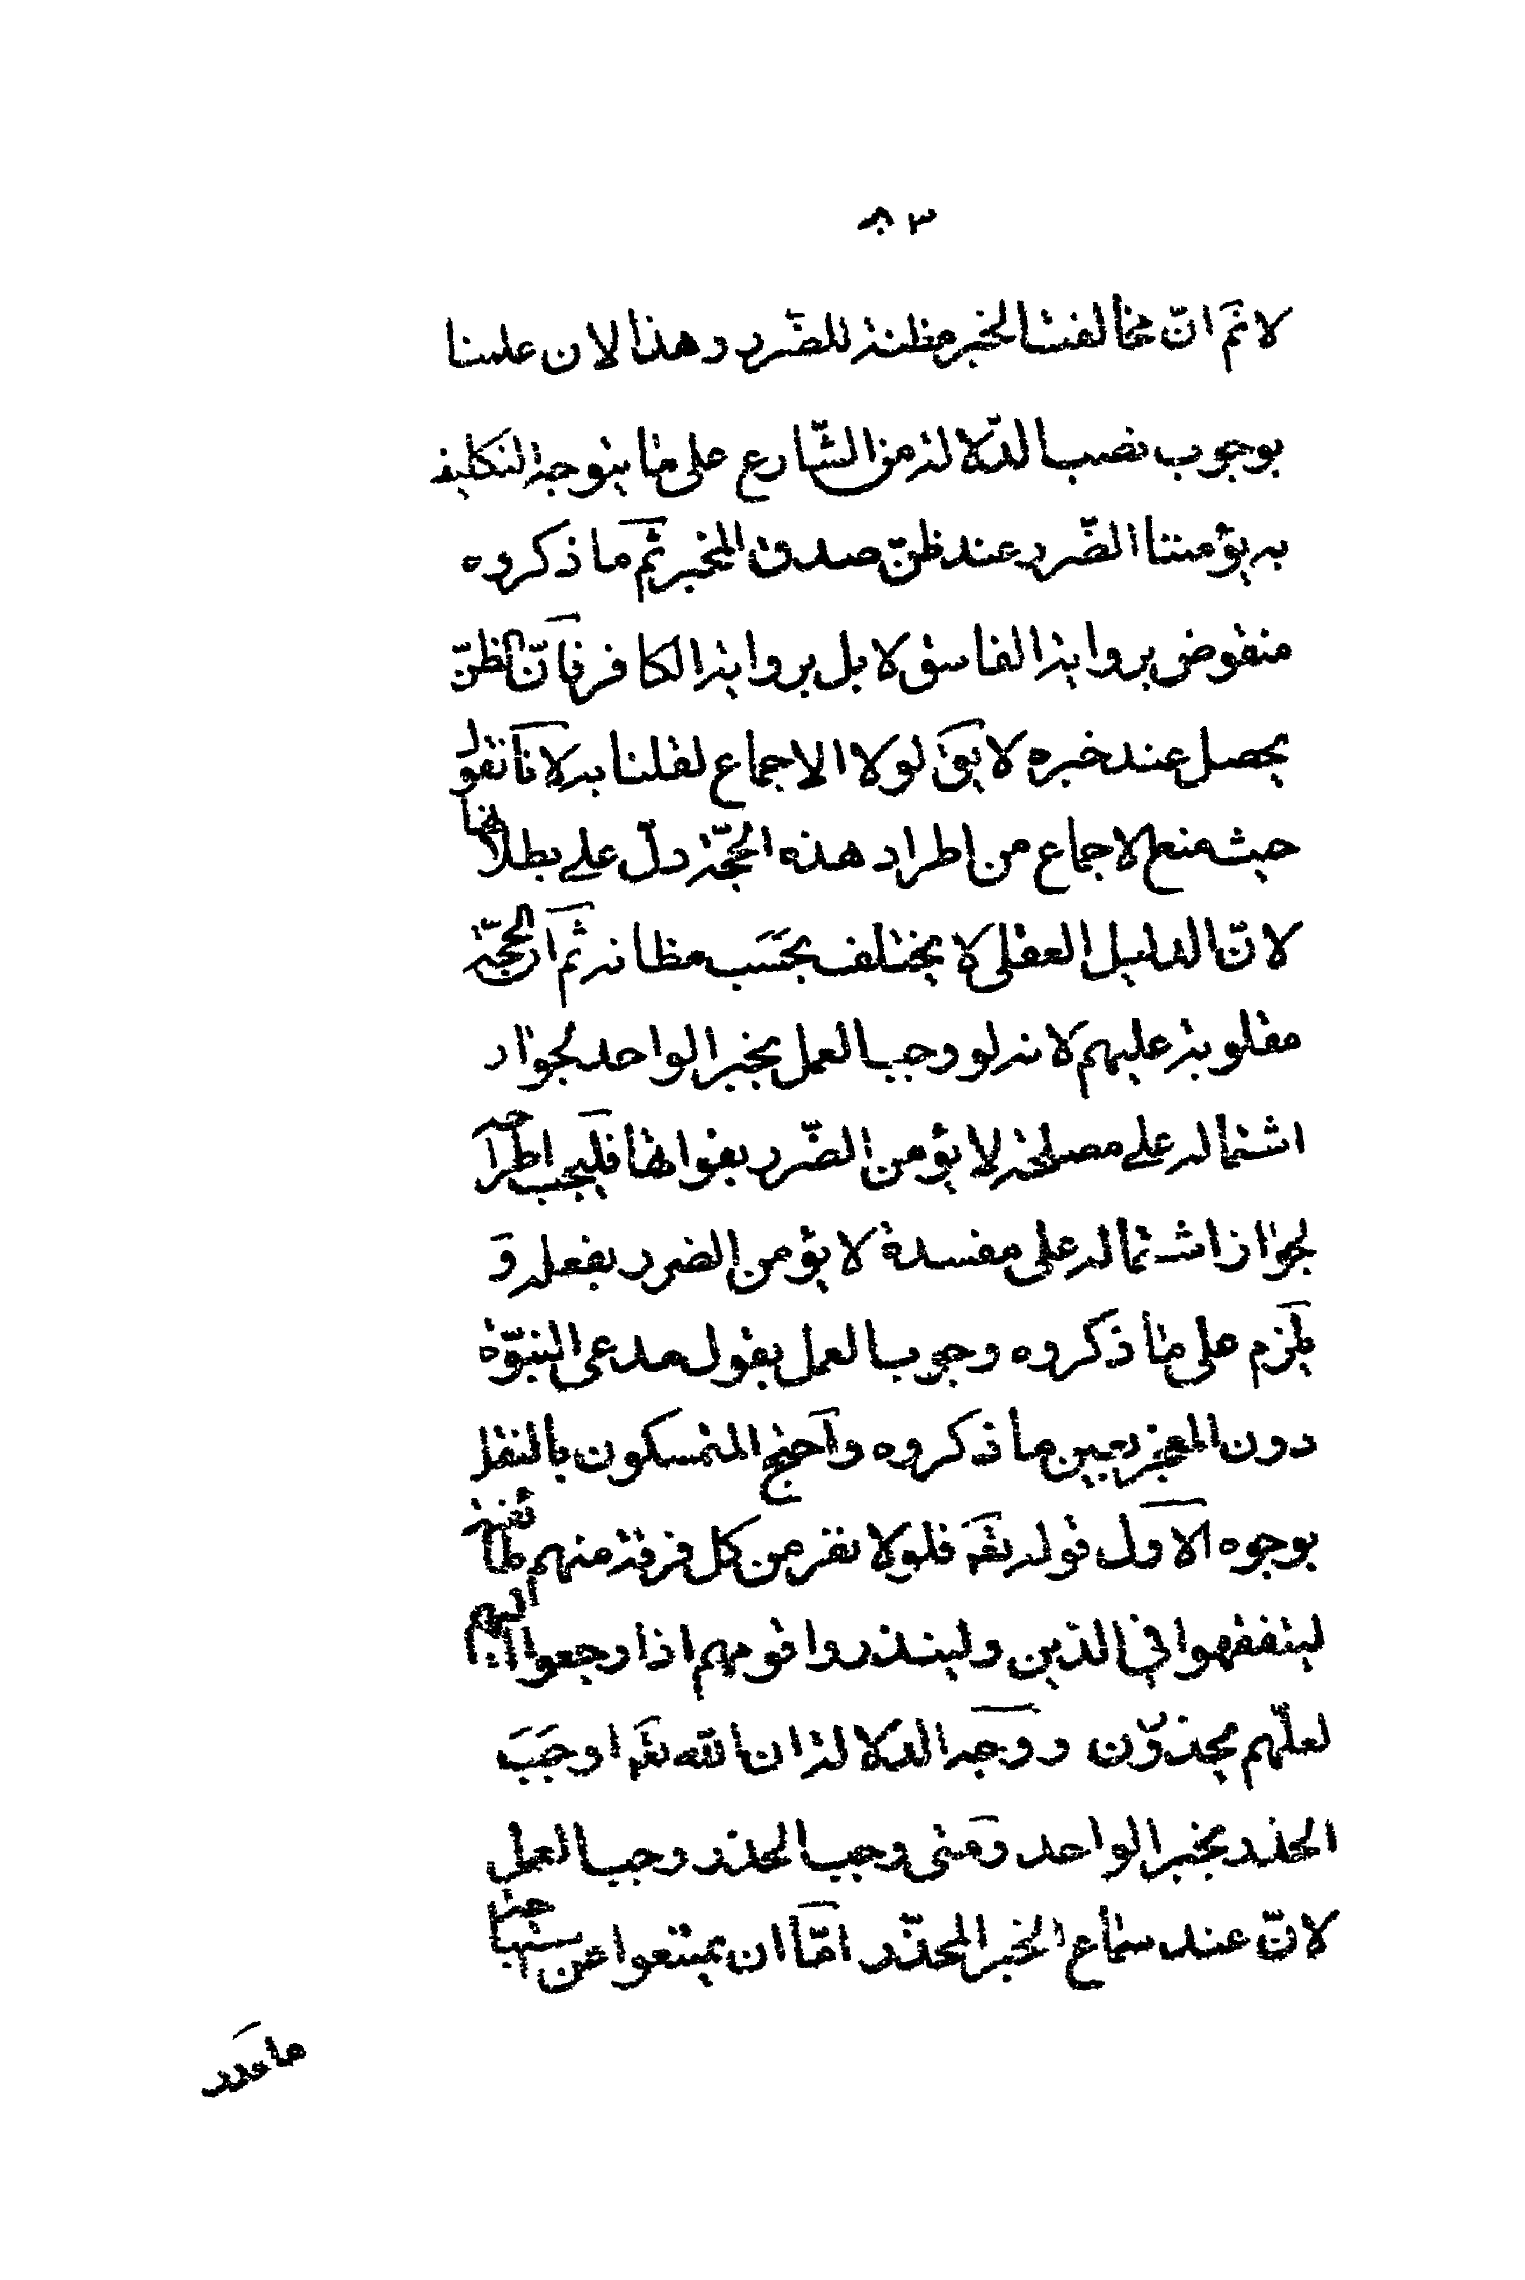 ٨٣
لا نم ان مخالفتنا الخبر مظنة للضرر وهذا لان علمنا
بوجوب نصب الدلالة من الشارع على ما يتوجه التكليف
به يؤمننا الضرر عند ظن صدق المخبر ثم ما ذكروه
منقوض برواية الفاسق لا بل برواية الكافر فان الظن
يحصل عند خبره لا يق لولا الاجماع لقلنا به لانا نقول
حيث منع الاجماع من اطراد هذه الحجة دل على بطلانها
لان الدليل العقلي لا يختلف بحسب مظانه ثم ان الحجة
مقلوبة عليهم لانه لو وجب العمل بخبر الواحد لجواز
اشتماله على مصلحة لا يؤمن الضرر بفواتها فليجب اطراحه
لجواز اشتماله على مفسدة لا يؤمن الضرر بفعله و
يلزم على ما ذكروه وجوب العمل بقول مدعى النبوة
دون المعجز بعين ما ذكروه واحتج المتمسكون بالنقل
بوجوه الاول قوله تعه فلولا نفر من كل فرقة منهم طائفة
ليتفقهوا في الدين ولينذروا قومهم اذا رجعوا اليهم
لعلهم يحذرون ووجه الدلالة ان الله تعه اوجب
الحذر بخبر الواحد ومتى وجب الحذر وجب العمل
لان عند سماع الخبر المحذر اما ان يمتنعوا عن